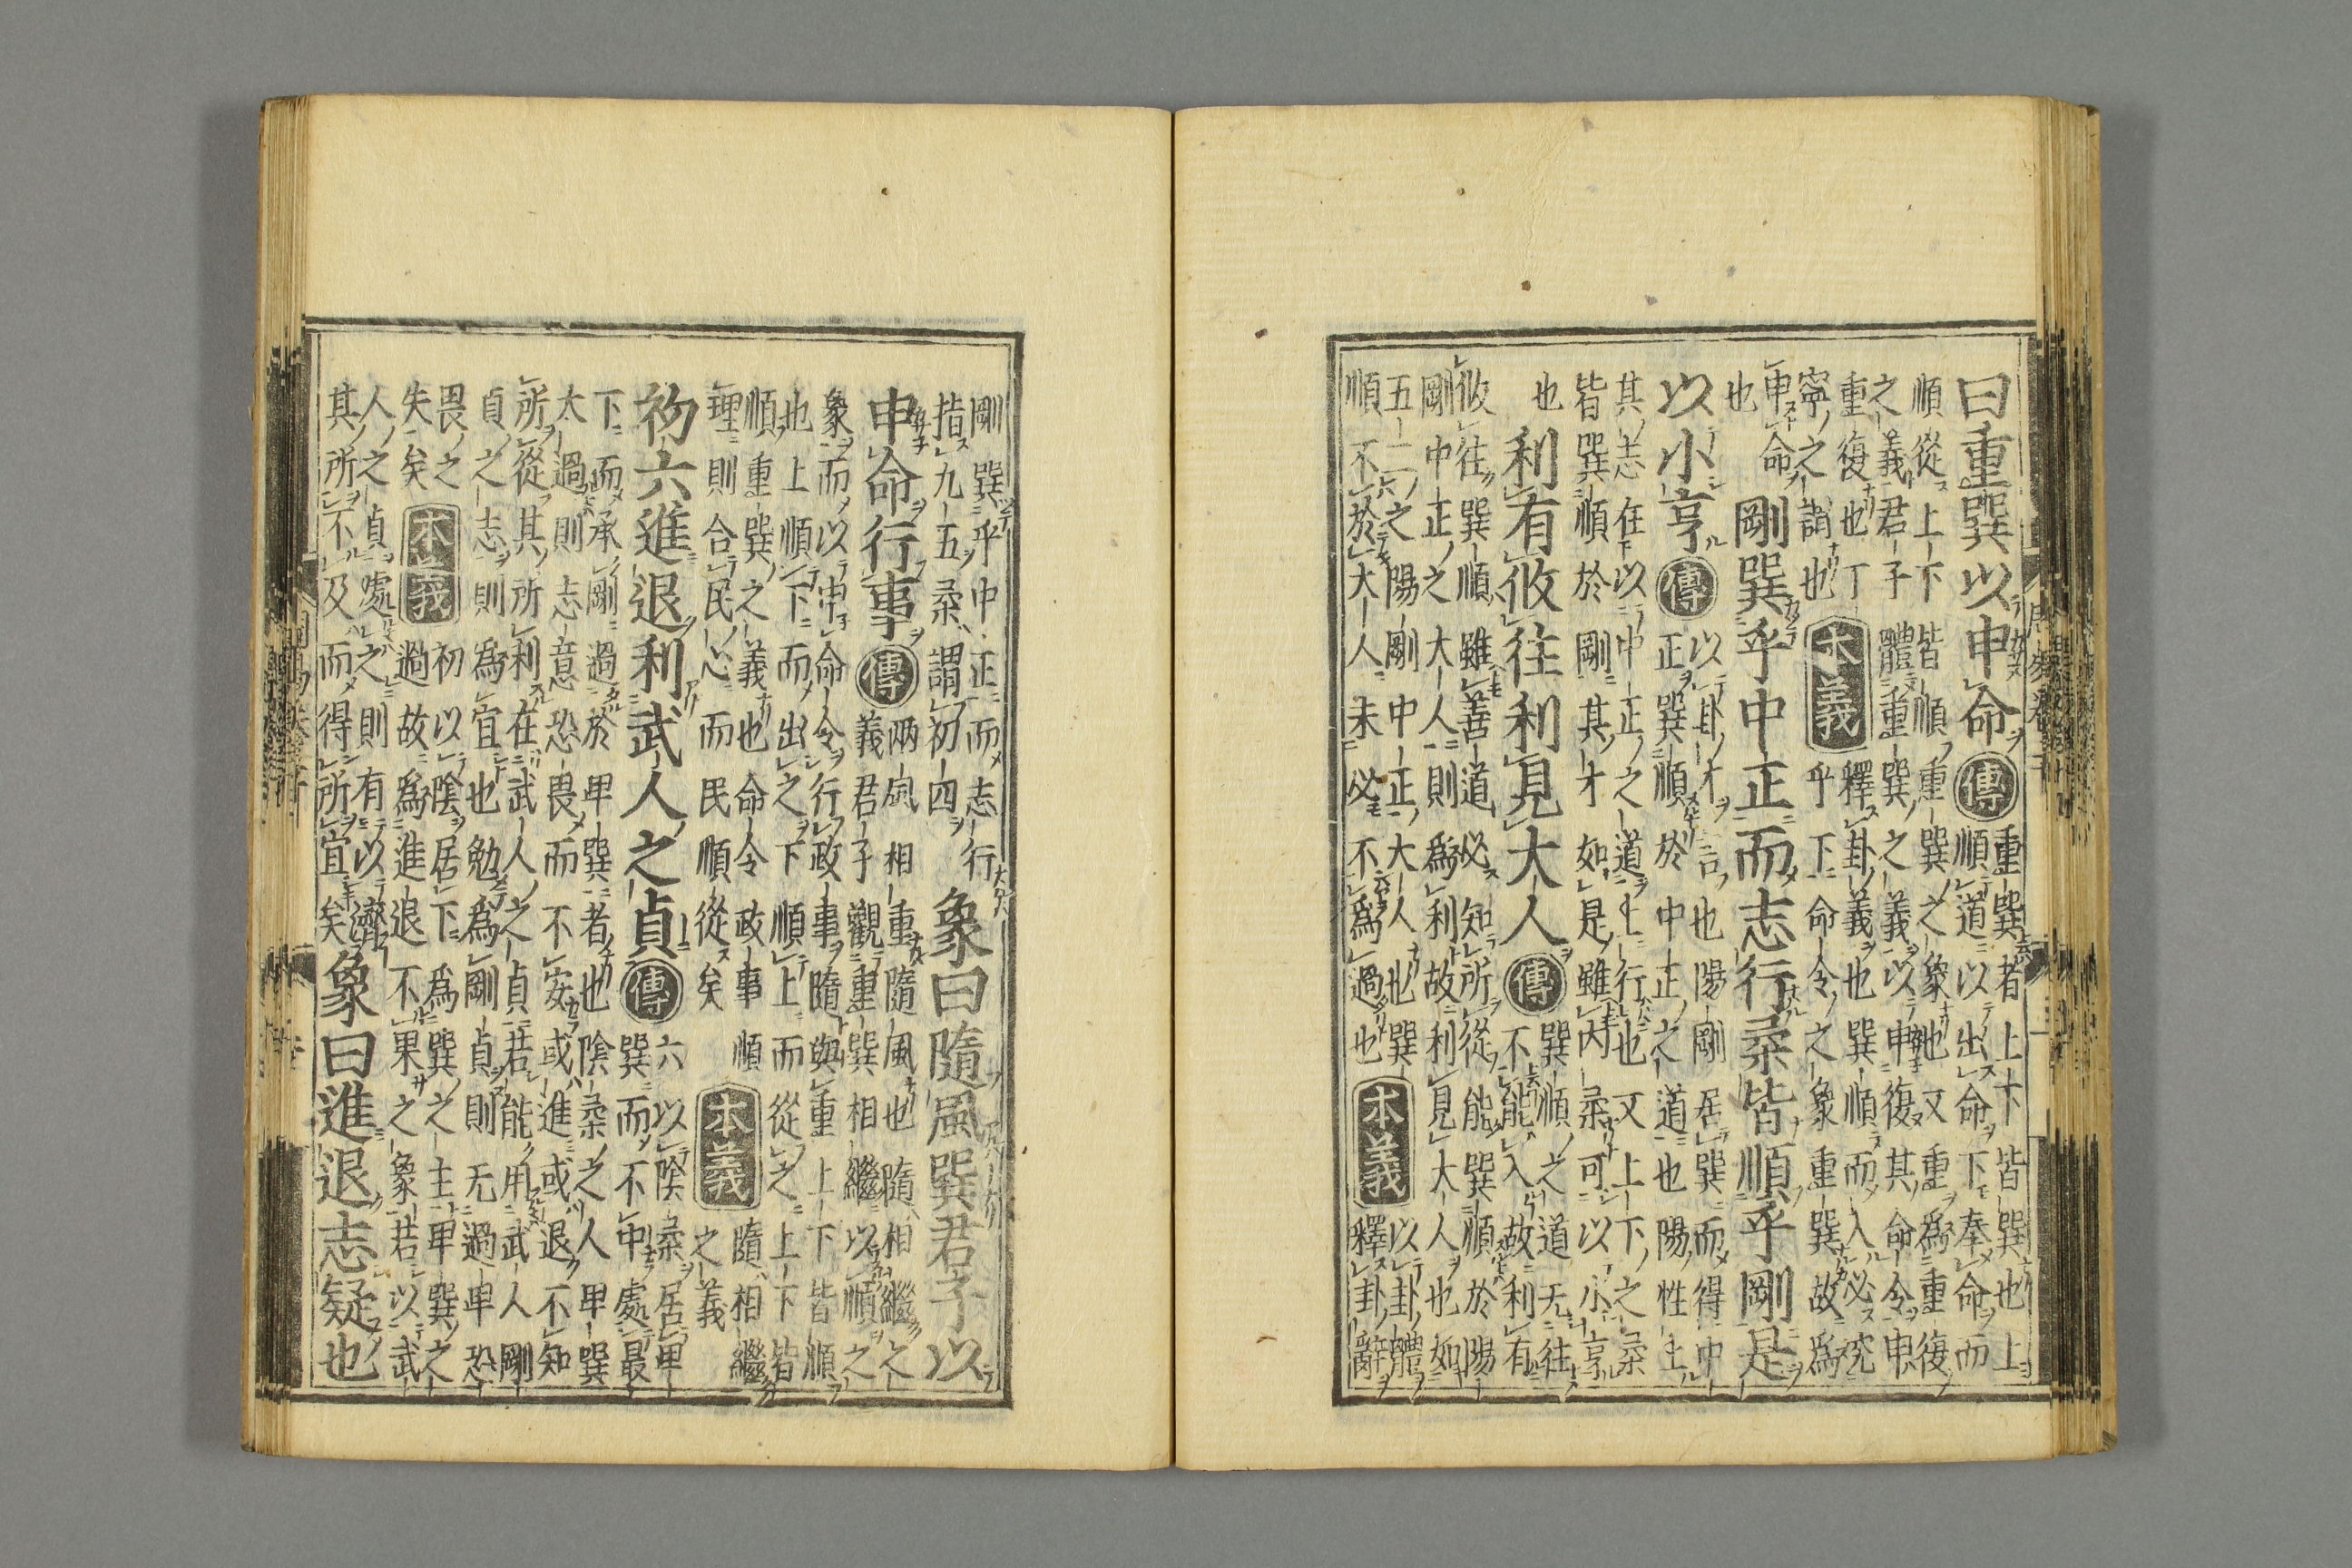 曰重巽以申命
傳
重巽者上下皆巽也上
順道以出命下奉命而
順從上下皆順重巽之象也又重爲重復
之義君子體重巽之義以申復其命令申
重復也丁
寧之謂也
本義
釋卦義也巽順而入必究
乎下命令之象重巽故爲
申命
也
剛巽乎中正而志行柔皆順乎剛是
以小亨
傳
以卦才言也陽剛居巽而得中
正巽順於中正之道也陽性上
其志在以中正之道上行也又上下之柔
皆巽順於剛其才如是雖內柔可以小亨
也
利有攸往利見大人
傳
巽順之道无往
不能入故利有
攸往巽順雖善道必知所從能巽順於陽
剛中正之大人則爲利故利見大人也如
五二之陽剛中正大人也巽
順不於大人未必不爲過也
本義
以卦體
釋卦辭
剛巽乎中正而志行
指九五柔謂初四
象曰隨風巽君子以
申命行事
傳
兩風相重隨風也隨相繼之
義君子觀重巽相繼以順之
象而以申命令行政事隨與重上下皆順
也上順下而出之下順上而從之上下皆
順重巽之義也命令政事順
理則合民心而民順從矣
本義
隨相繼
之義
初六進退利武人之貞
傳
六以陰柔居卑
巽而不中處最
下而承剛過於卑巽者也陰柔之人卑巽
太過則志意恐畏而不安或進或退不知
所從其所利在武人之貞若能用武人剛
貞之志則爲宜也勉爲剛貞則无過卑恐
畏之
失矣
本義
初以陰居下爲巽之主卑巽之
過故爲進退不果之象若以武
人之貞處之則有以濟
其所不及而得所宜矣
象曰進退志疑也